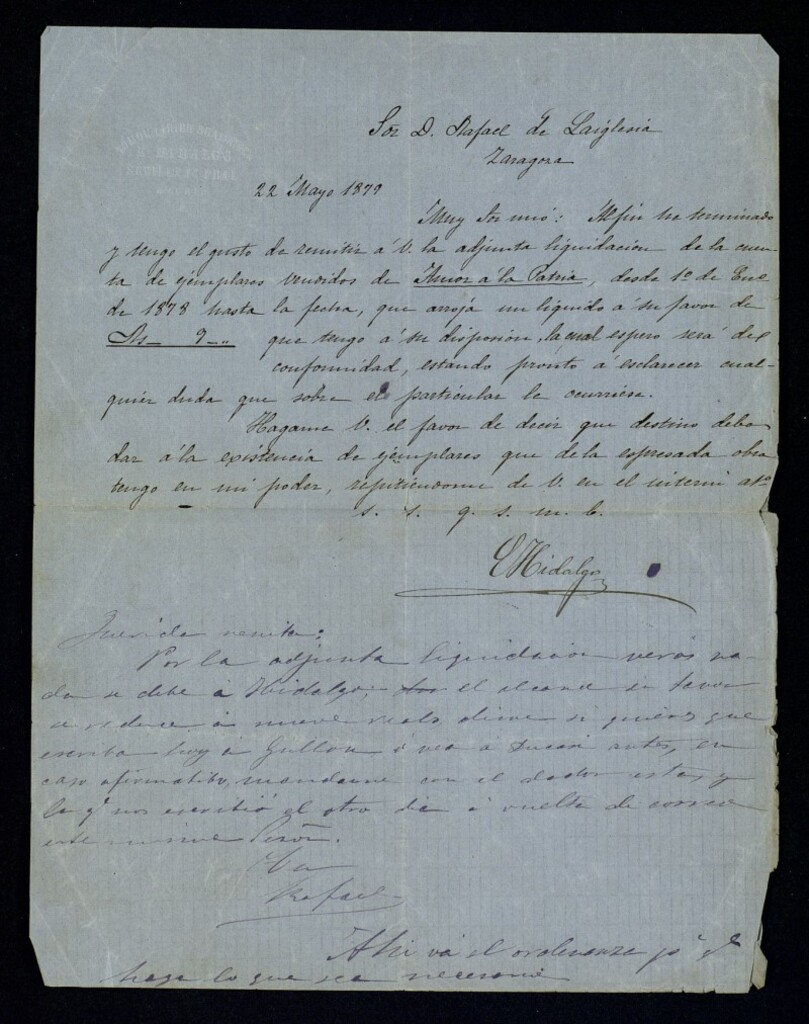 Sor D. Rafael de Laiglesia
Zaragoza
22 Mayo 1879
Muy Sor mio: Al fin he terminado
y tengo el gusto de remitir á V. la adjunta liquidacion de la cuen-
ta de ejemplares vendidos de Amor á la Patria, desde 1º de Eneº
de 1878 hasta la fecha, que arroja un líquido á su favor de
Rs 9 que tengo á su disposion, la cual espero será de
conformidad, estando pronto á esclarecer cual-
quier duda que sobre el particular le ocurriese.
Hagame V. el favor de decir que destino debo
dar á la existencia de ejemplares que de la espresada obra
tengo en mi poder, repitiendome de V. en el interin atº
s. s. q. s. m. b.
E Hidalgo
Querida
Por la adjunta liquidacion verás na-
da se debe á Hidalgo; el alcance su favor
se reduce á nueve reals dime si quieres que
escriba hoy á Gullon ó vea á antes, en
caso afirmatibo, mandame con el dador esta, y
la q. nos escribió el otro dia á vuelta de correo
este
Tu
Rafael
Ahi vá el ordenanza pª q.
haga lo que sea necesario